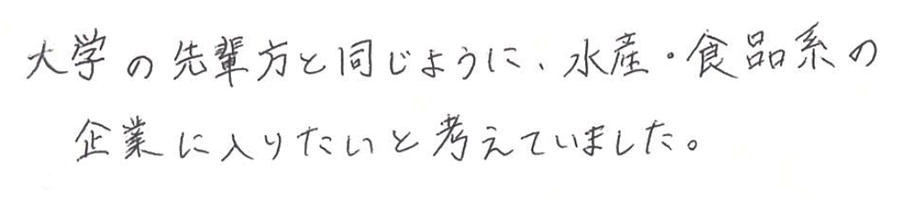 大学の先輩方と同じように、水産・食品系の
企業に入りたいと考えていました。